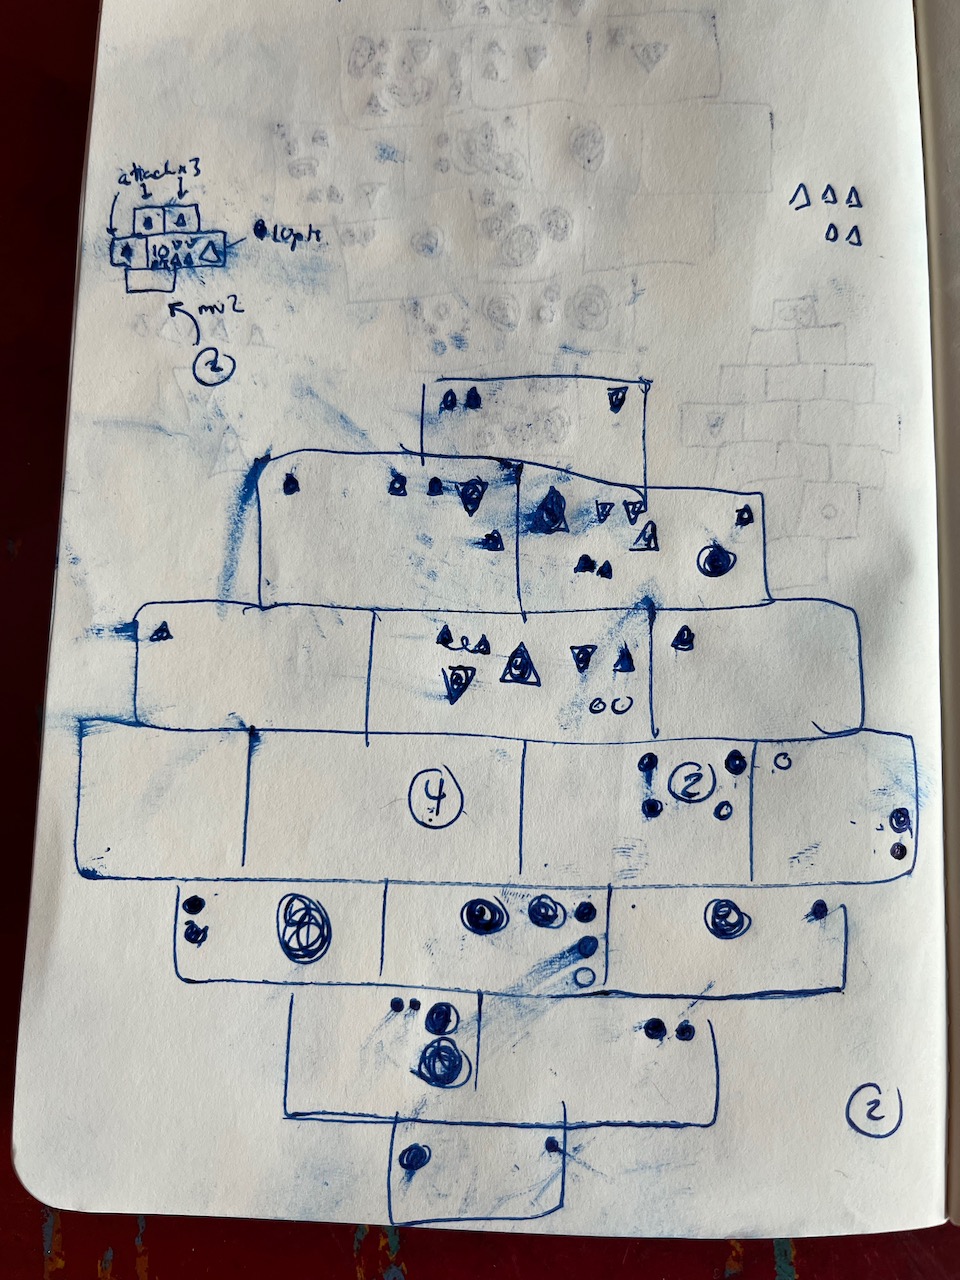 attack x3
10
10pts
mv 2
2
4
2
2